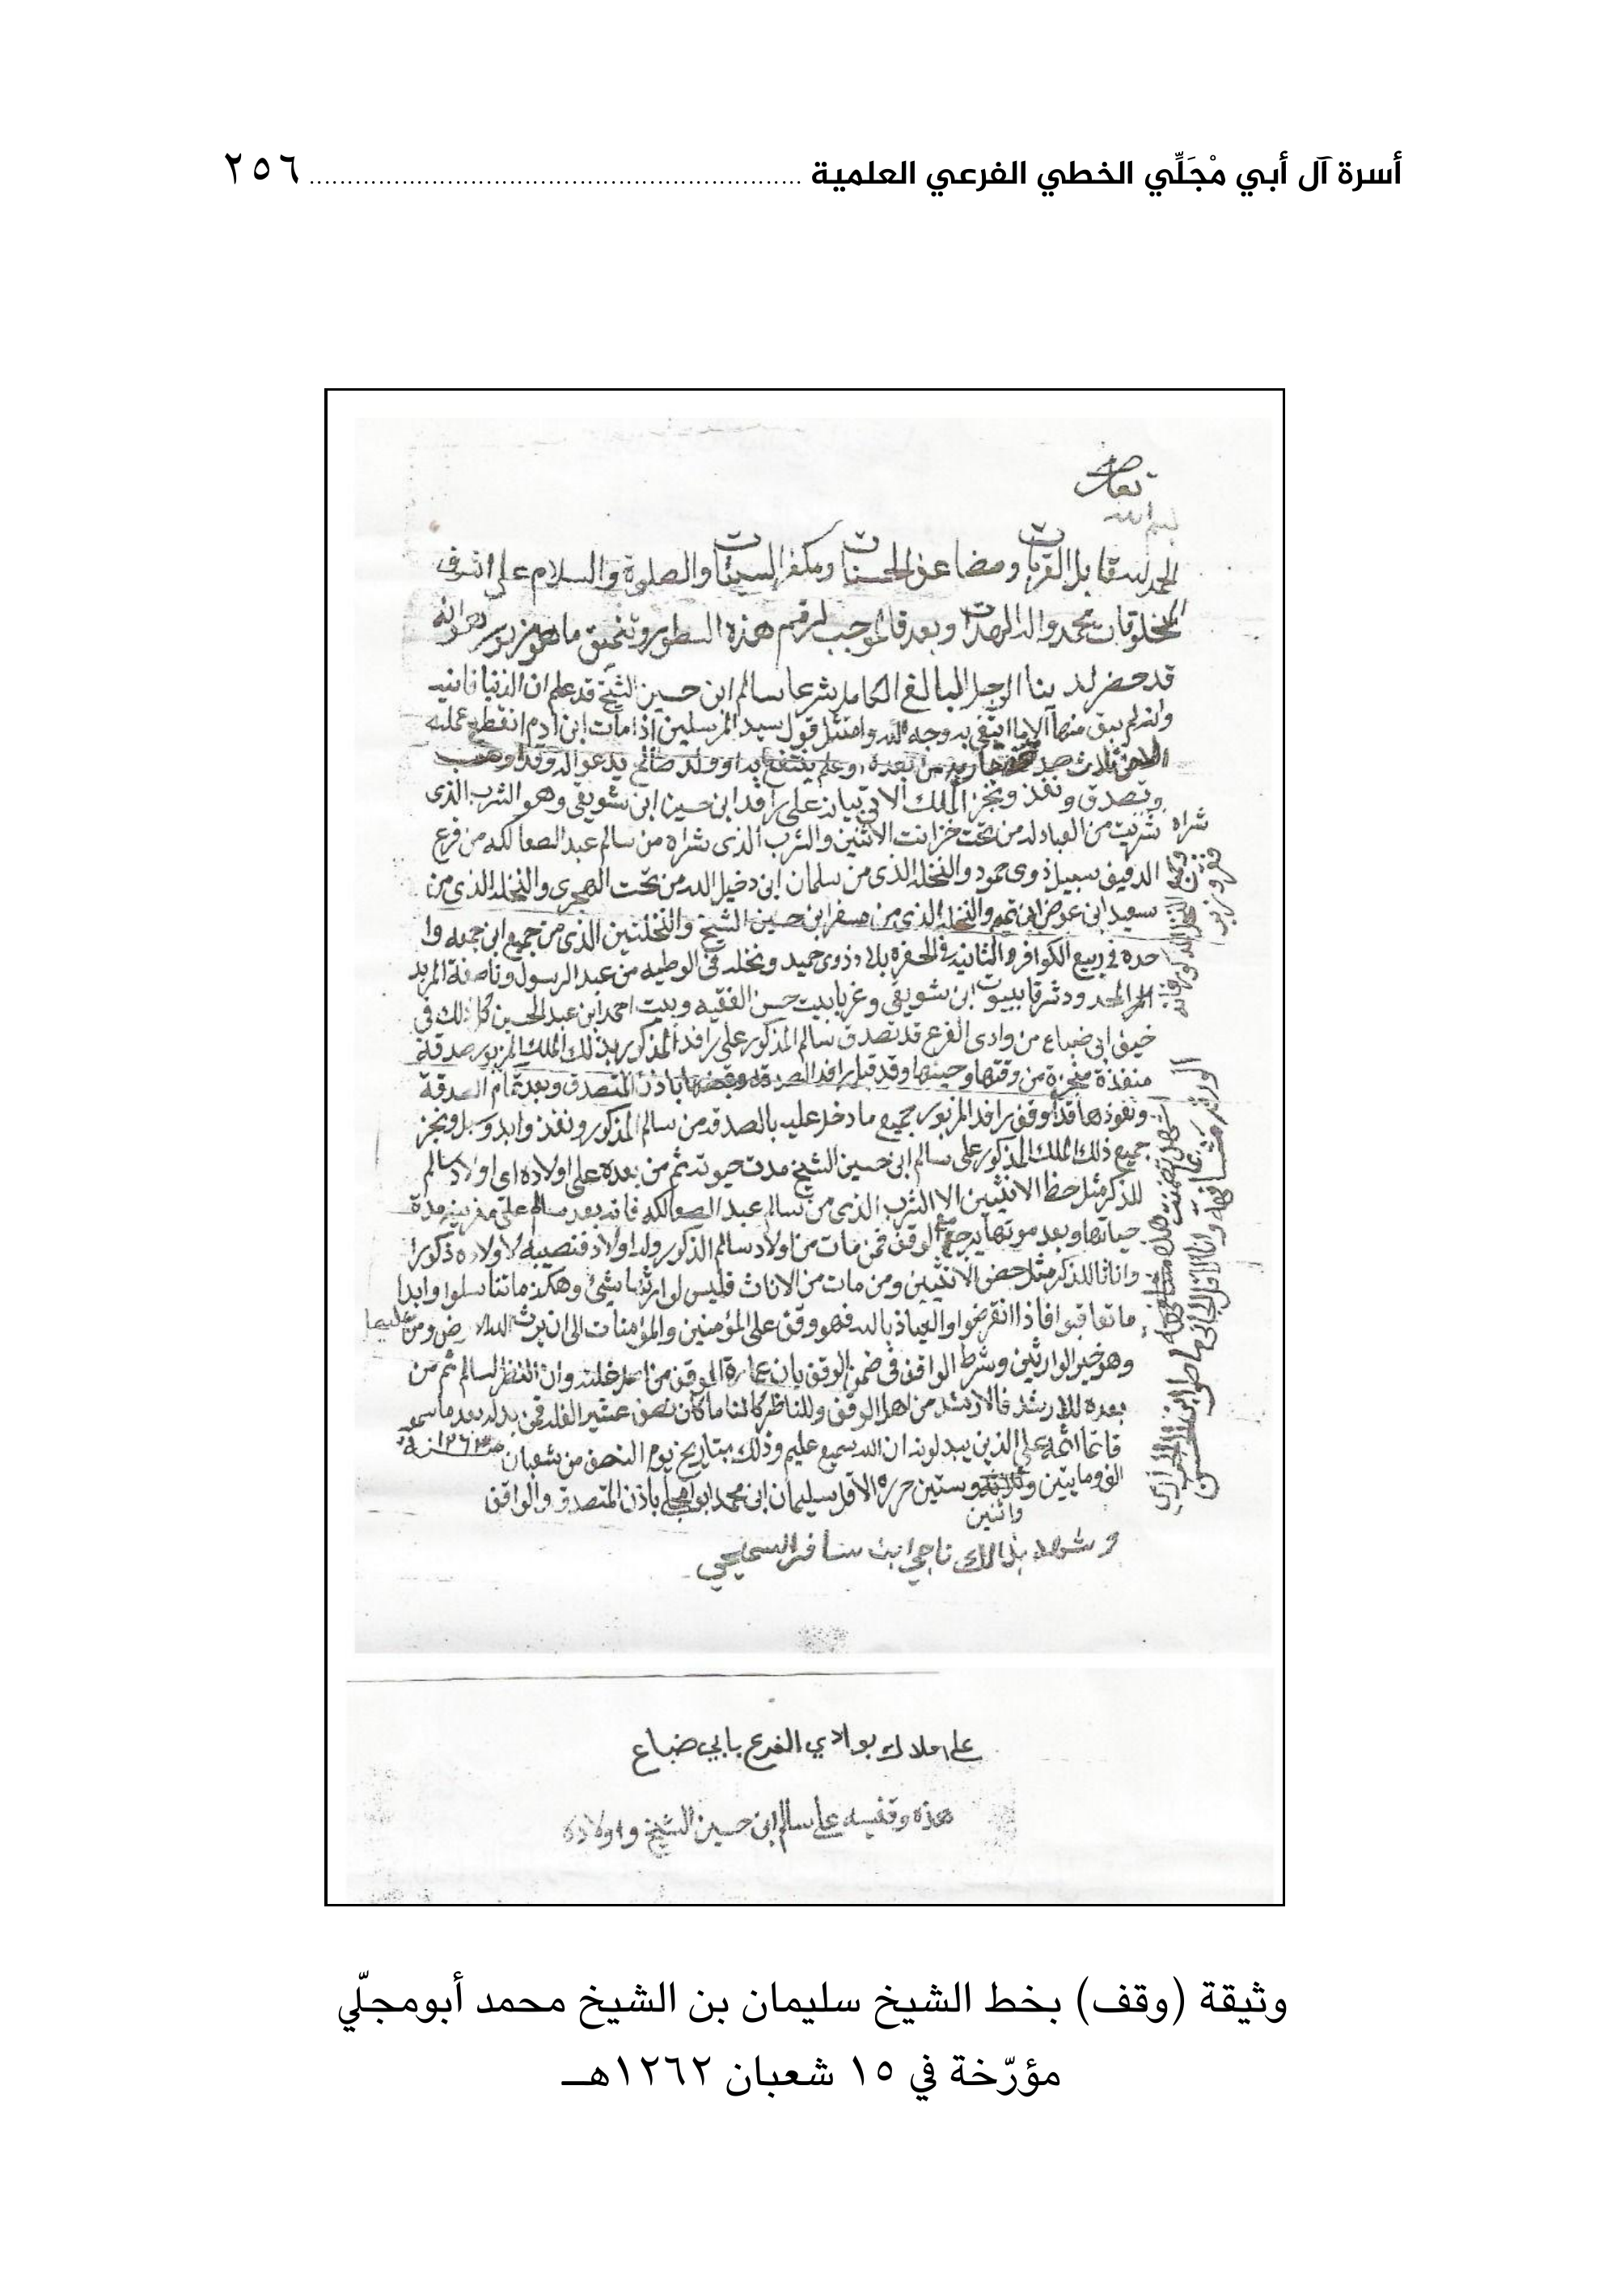 أسرة آل أبي مْجَلِّي الخطي الفرعي العلمية ................................................................ ٢٥٦
الحمد لله قابل القربات ومضاعف الحسنات ومكفر السيئات والصلوة والسلام على اشرف
المخلوقات محمد واله الهدات وبعد فالموجب لرقم هذه السطور وتنميق ما هو مزبور هو انه
قد حضر لدينا الرجل البالغ الكامل شرعا سالم ابن حسين الشيخ قد علم ان الدنيا فانيه
وانه لم يبق منها الا ما ابتغي به وجه الله وامتثل قول سيد المرسلين اذا مات ابن ادم انقطع عمله
الا من ثلاث صدقة من بعده وعلم ينتفع به او ولد صالح يدعو له وقد اوهب
وتصدق ونفذ ونجز الملك الاتي بيانه على رافد ابن حسين ابن شويقي وهو الشرب الذي
شراه
شريت من العبادله من تحت خزانت الاثنين والشرب الذي شراه من سالم عبد الصعالكه من فرع
الدفيق سبيل ذوي حمود والنخله الذي من سلمان ابن دخيل الله من تحت الهجري والنخله الذي من
سعيد ابن عوض ابن والنخله الذي من مسفر ابن حسين الشيخ والنخلتين الذي من جميع ابن جمعه وا
حده في ربيع الكوافره والثانيه في الحفره بلاد ذوي حميد ونخله في الوطيه من عبد الرسول وناصفة المربد
وشرقا بيوت ابن شويقي وغربا بيت حسن الفقيه وبيت احمد ابن عبد الحسين كل ذلك في
خيف ابي ضباع من وادي الفرع قد تصدق سالم المذكور على رافد المذكور بذلك الملك المزبور صدقة
منفذة منجزة من وقتها وحينها وقد قبل رافد الصدقه وقبضها باذن المتصدق وبعد تمام الصدقة
ونفوذها قد اوقف رافد المزبور جميع ما دخل عليه بالصدقه من سالم المذكور ونفذ وابد وسبل ونجز
جميع ذلك الملك المذكور على سالم ابن حسين الشيخ مدت حيوته ثم من بعده على اولاده اي اولاد سالم
للذكر مثل حظ الانثيين الا الشرب الذي من سالم عبد الصعالكه فانه بعد سالم على مدة
حياتها وبعد موتها يرجع الوقف فمن مات من اولاد سالم المذكور وله اولاد فنصيبه لاولاده ذكورا
واناثا للذكر مثل حض الانثيين ومن مات من الاناث فليس لوارثها شيئ وهكذا ما تناسلوا وابدا
ما تعاقبوا فاذا انقرضوا والعياذ بالله فهو وقف على المؤمنين والمؤمنات الى ان يرث الله الارض ومن عليها
وهو خير الوارثين وشرط الواقف في ضمن الوقف بان عمارة الوقف من غلته وان النظر لسالم ثم من
بعده للارشد فالارشد من اهل الوقف وللناظر كائنا ما كان نصف عشر الغله فمن بدله بعد ما سمعه
فانما اثمه على الذين يبدلونه ان الله سميع عليم وذلك بتاريخ يوم النصف من شعبان سنة ١٢٦٢
الف ومايتين وستين حرره الاقل سليمان ابن محمد ابو امجلي باذن المتصدق والواقف
واثنين
وشهد بذالك ناجي ابن سافر السميحي
على املاك بوادي الفرع بابي ضباع
هذه وقفيه على سالم ابن حسين الشيخ واولاده
وثيقة (وقف) بخط الشيخ سليمان بن الشيخ محمد أبومجلّي
مؤرّخة في ١٥ شعبان ١٢٦٢هـ